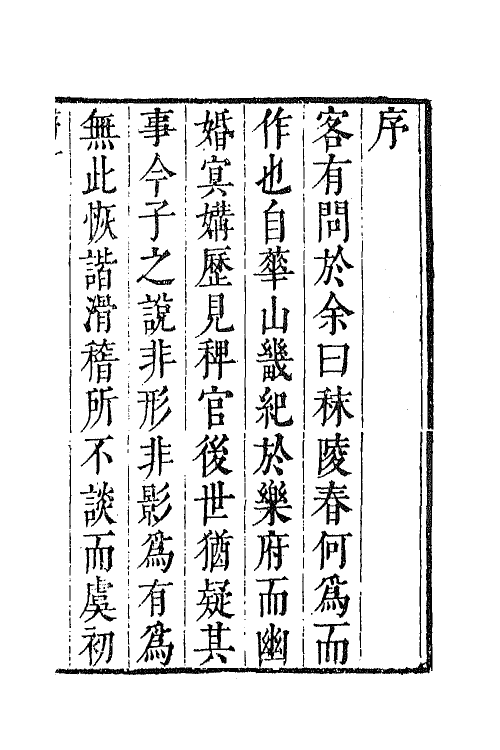 序
客有問於余曰秣陵春何爲而
作也自華山畿紀於樂府而幽
婚冥媾歷見稗官後世猶疑其
事今子之說非形非影爲有爲
無此恢諧滑稽所不談而虞初